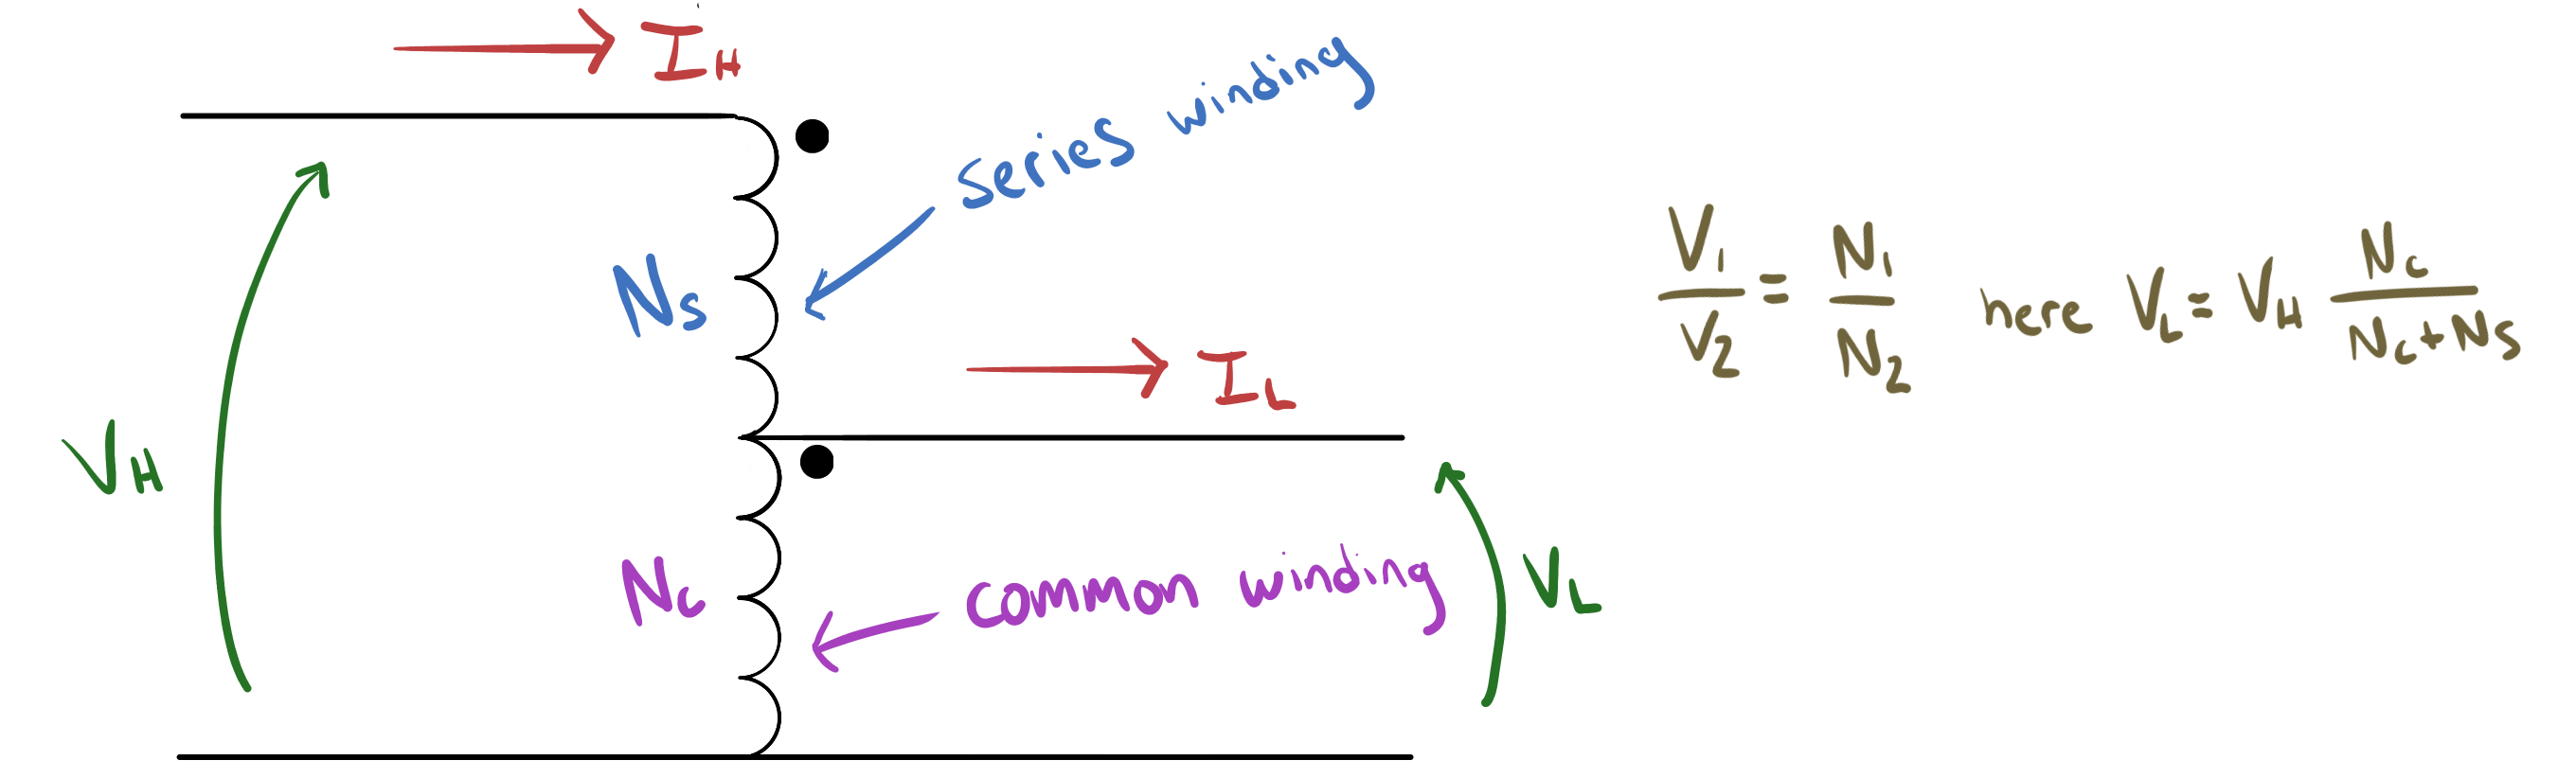 I_H
series winding
N_s
I_L
V_H
N_c
common winding
V_L
V_1/V_2 = N_1/N_2 here V_L = V_H N_c/(N_c+N_s)